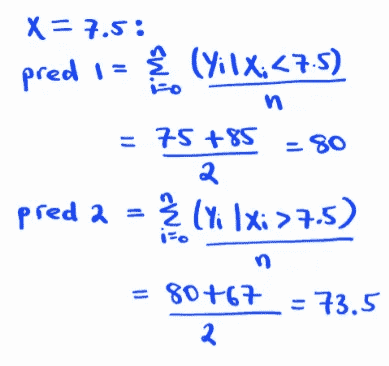 X = 7.5:
pred 1 = Σⁿᵢ₌₀ (Yi | Xi < 7.5) / n
= 75 + 85 / 2 = 80
pred 2 = Σⁿᵢ₌₀ (Yi | Xi > 7.5) / n
= 80 + 67 / 2 = 73.5